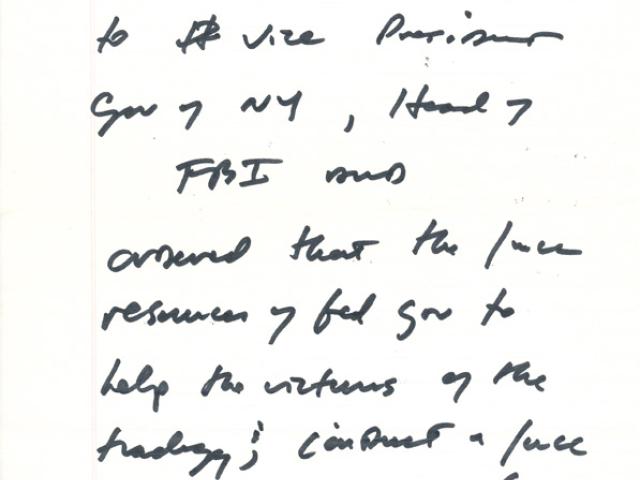 to Vice President
Gov of NY, Head of
FBI and
ordered that the full
resources of fed gov to
help the victims of the
tradegy; conduct a full